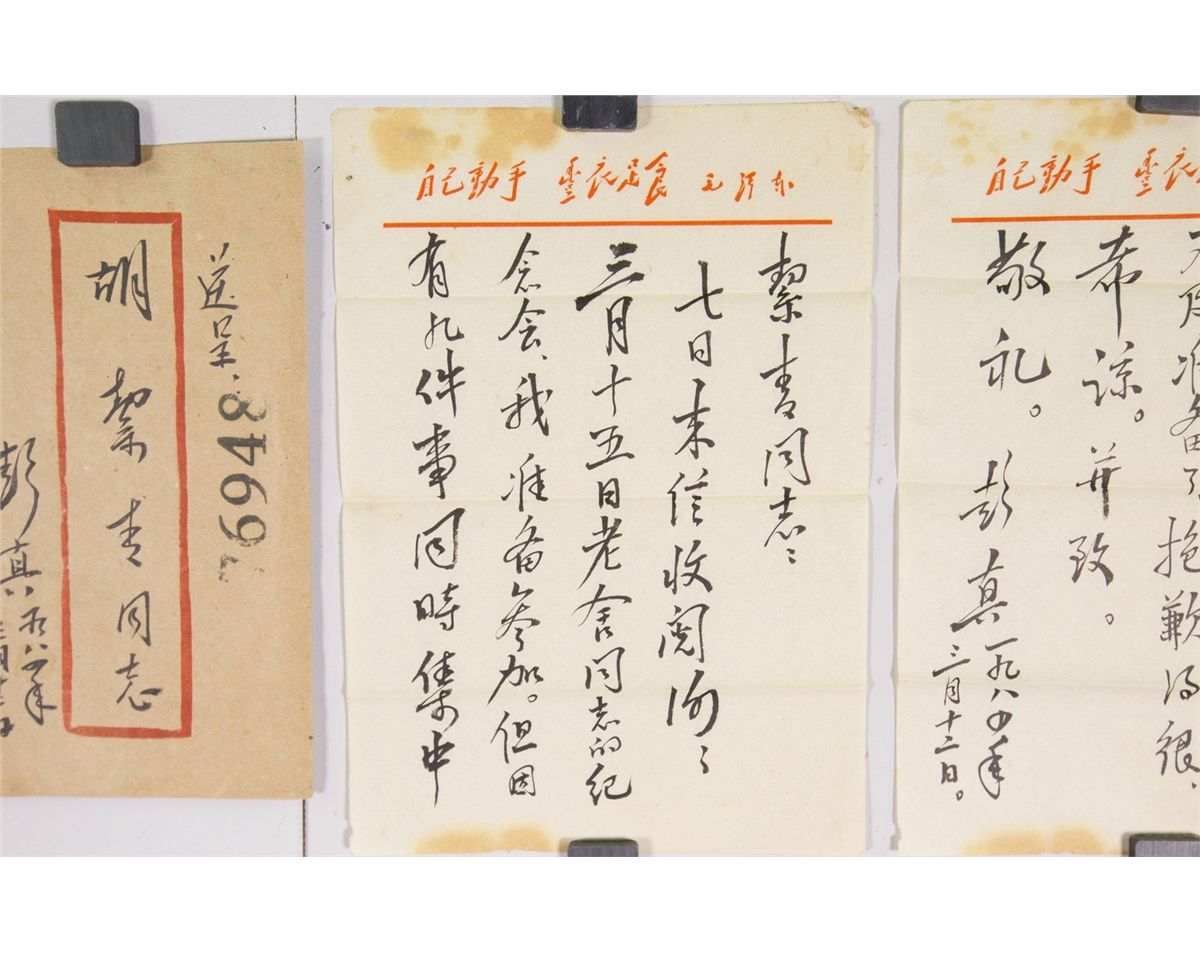 送呈、
76948
胡絜青同志
彭真 一九八四年
三月十二日
自己動手 豐衣足食 毛澤东
絜青同志:
七日来信收阅。
三月十五日老舍同志的纪
念会、我准备参加。但因
有几件事同時集中
自己動手 豐衣
准备了抱歉得很、
希谅。并致。
敬礼。
彭真 一九八四年
三月十二日。